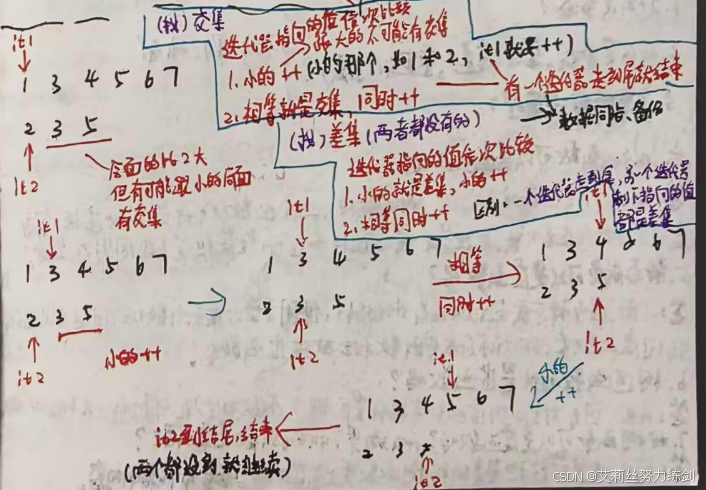 (找)交集
迭代器指向的值依次比较
跟大的不可能有交集
1. 小的++ (小的那个,如1和2,it1就要++)
2. 相等就是交集,同时++
有一个迭代器走到尾就结束
数据同步、备份
(找)差集(两者都没有的)
迭代器指向的值依次比较
1. 小的就是差集,小的++
2. 相等同时++
区别:一个迭代器走到尾,另一个迭代器
剩下指向的值
都是差集
it1
1 3 4 5 6 7
2 3 5
it2
后面的比2大
但有可能跟小的后面
有交集
it1
1 3 4 5 6 7
2 3 5
it2
小的++
it1
1 3 4 5 6 7
2 3 5
it2
相等
同时++
it1
1 3 4 5 6 7
2 3 5
it2
小的
++
it1
1 3 4 5 6 7
2 3 5
it2
it2走到结尾,结束
(两个都没到就继续)
CSDN @艾莉丝努力练剑